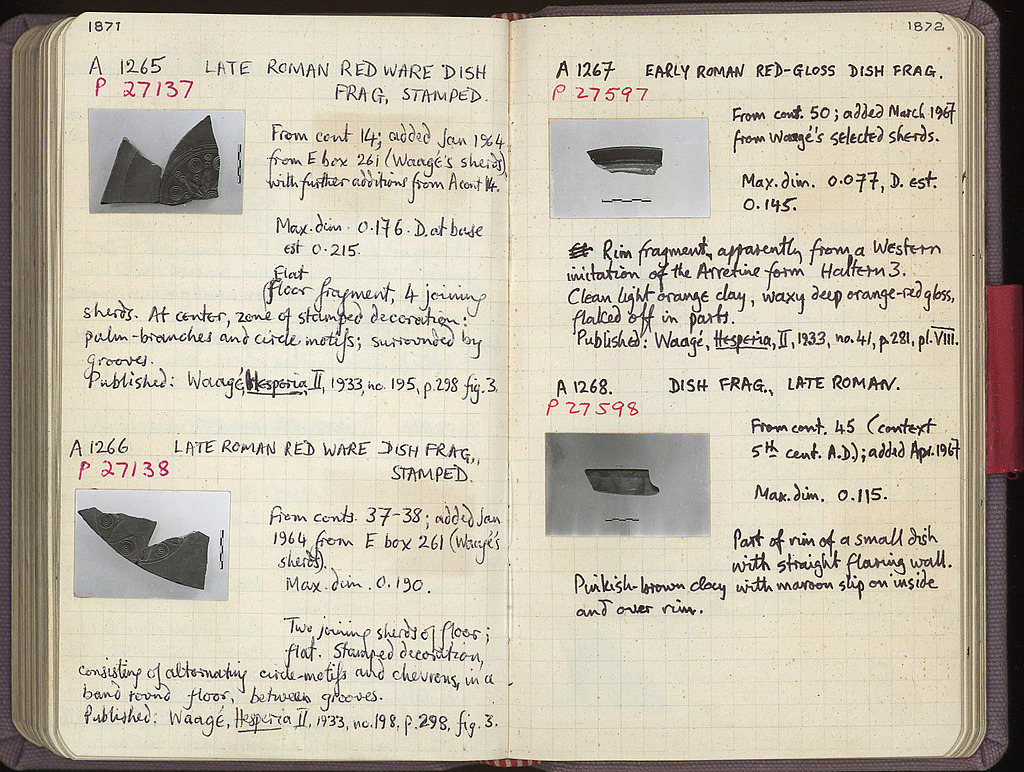 1871
A 1265 LATE ROMAN RED WARE DISH
P 27137 FRAG, STAMPED.
From cont 14; added Jan 1964
from E box 261 (Waagé's sherds)
with further additions from A cont 14.
Max. dim. 0.176. D. at base
est 0.215.
Flat
floor fragment, 4 joining
sherds. At center, zone of stamped decoration:
palm-branches and circle motifs; surrounded by
grooves.
Published: Waagé, Hesperia II, 1933 no. 195, p. 298 fig. 3.
A 1266 LATE ROMAN RED WARE DISH FRAG.,
P 27138 STAMPED.
From conts. 37-38; added Jan
1964 from E box 261 (Waagé's
sherds).
Max. dim. 0.190.
Two joining sherds of floor;
flat. Stamped decoration,
consisting of alternating circle-motifs and chevrons, in a
band round floor, between grooves.
Published: Waagé, Hesperia II, 1933, no. 198, p. 298, fig. 3.
1872
A 1267 EARLY ROMAN RED-GLOSS DISH FRAG.
P 27597
From cont. 50; added March 1967
from Waagé's selected sherds.
Max. dim. 0.077, D. est.
0.145.
Rim fragment, apparently from a Western
imitation of the Arretine form Haltern 3.
Clean light orange clay, waxy deep orange-red gloss,
flaked off in parts.
Published: Waagé, Hesperia, II, 1933, no. 41, p. 281, pl. VIII.
A 1268. DISH FRAG., LATE ROMAN.
P 27598
From cont. 45 (context
5th cent. A.D.); added Apr. 1967
Max. dim. 0.115.
Part of rim of a small dish
with straight flaring wall.
Pinkish-brown clay with maroon slip on inside
and over rim.